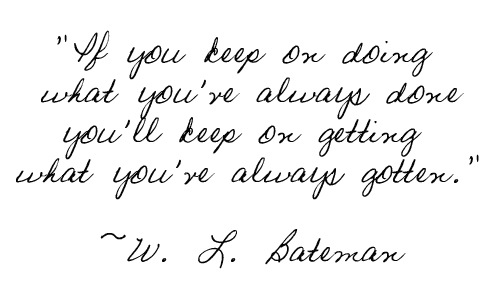 "If you keep on doing
what you've always done
you'll keep on getting
what you've always gotten."
~W. L. Bateman